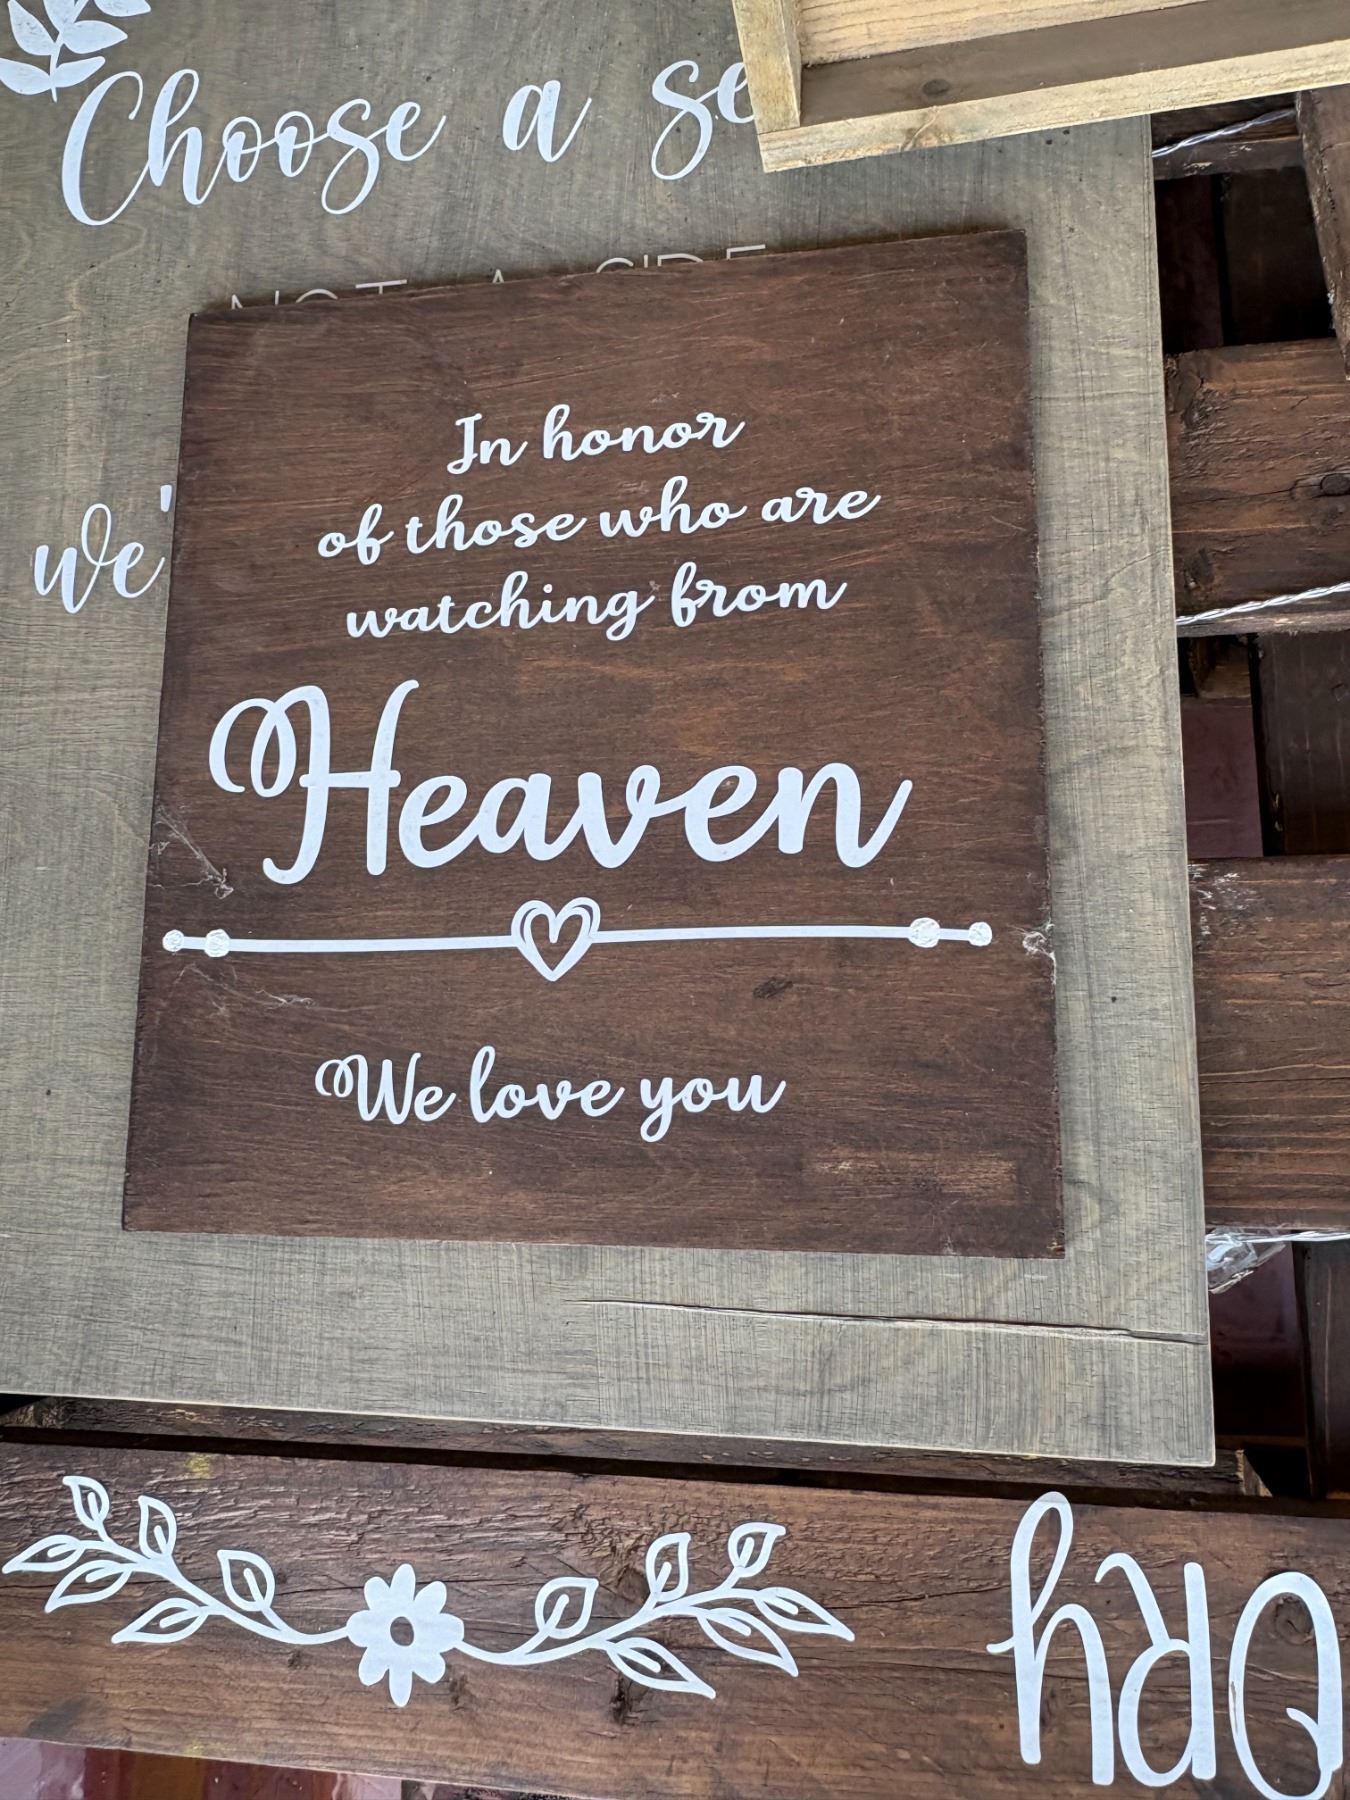 Choose a
NOT A SIDE
we'
In honor
of those who are
watching from
Heaven
We love you